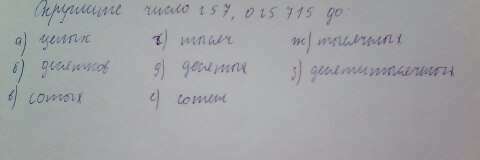 Округлите число 257, 025 715 до:
а) целых г) тысяч ж) тысячных
б) десятков д) десятых з) десятитысячных
в) сотых е) сотен